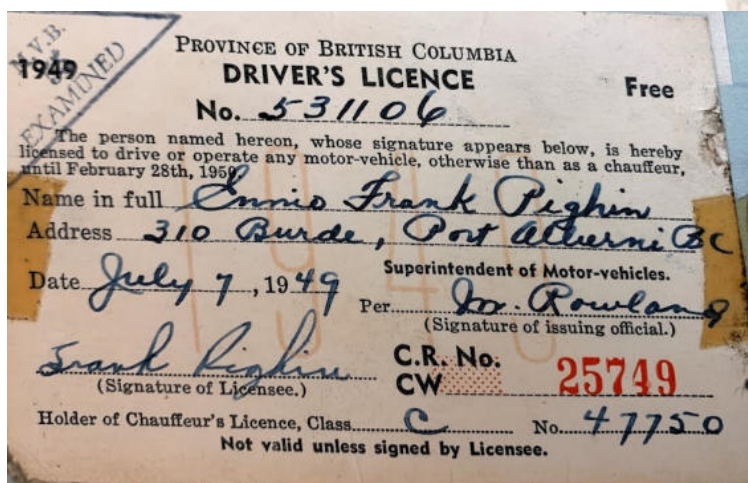 M.V.B.
EXAMINED
1949
PROVINCE OF BRITISH COLUMBIA
DRIVER'S LICENCE
Free
No. 531106
The person named hereon, whose signature appears below, is hereby
licensed to drive or operate any motor-vehicle, otherwise than as a chauffeur,
until February 28th, 1950.
Name in full Ennio Frank Pighin
Address 310 Burde, Port Alberni BC
Date July 7, 1949
Superintendent of Motor-vehicles.
Per M. Rowland
(Signature of issuing official.)
Frank Pighin
(Signature of Licensee.)
C.R. No.
CW 25749
Holder of Chauffeur's Licence, Class C No. 47750
Not valid unless signed by Licensee.